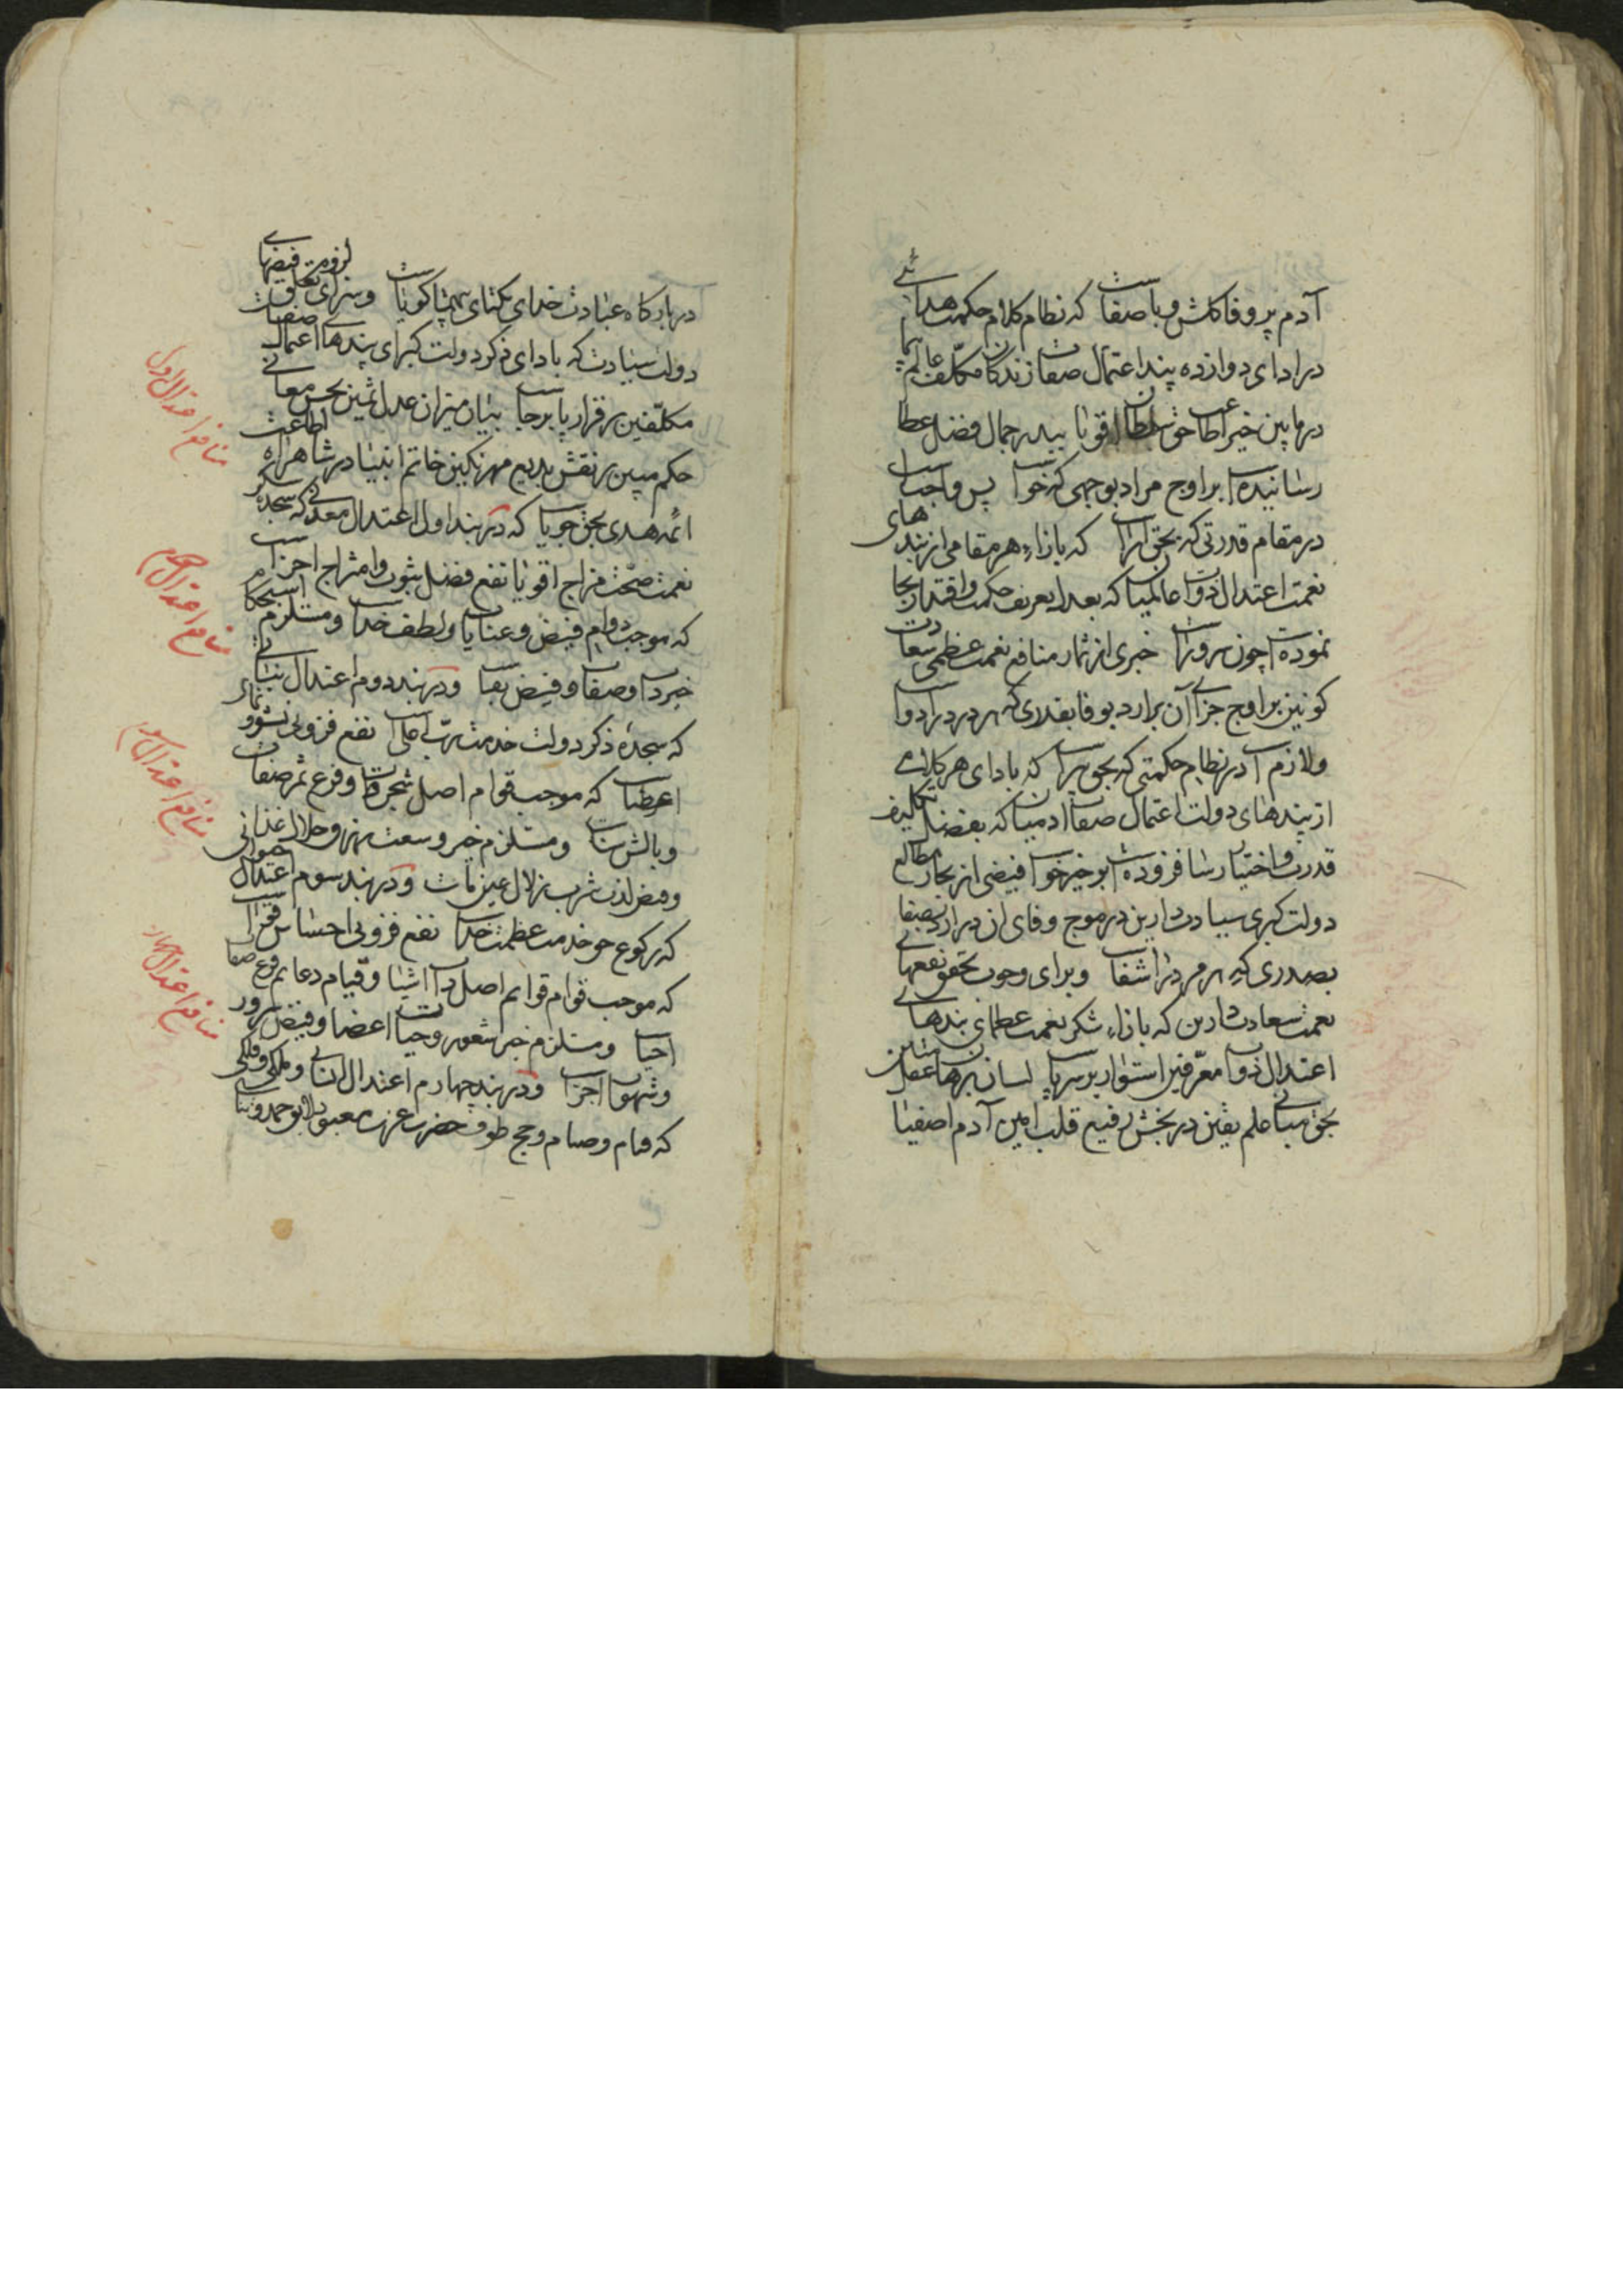 آدم پر وفا کلش و با صفاست که نظام کلام حکمت هدائی
در ادای دوازده پند اعتمال صفات زندکان مکلف عالم
در مابین خیر اطاعت حق سلطان اقویا بیدر جمال فضل عطا
رسانیده است بر اوج مراد بوجهی که خواست پس واجب است
در مقام قدرتی که بحق آراست که بازاء هر مقامی از بندهای
نعمت اعتدال ذوات عالمیان که بعدل تعریف حکمت واقتدار بجا
نموده است چون سرور است خبری از ثمار منافع نعمت عظمی سعادت
کونین بر اوج جزای آن برارد بوفا بقدری که در در ادواست
ولازم است در نظام حکمتی که بحق سراست که بادای هر کلامی
از پندهای دولت اعتمال صفات ادمیان که بفضل تکلیف
قدرت و اختیار رسا فزوده است بر خیز خواست فیضی از بحار مطالع
دولت کبری سیادت دارین در موج وفای ان در ارد بصفا
بصدری که در اشفاست وبرای وجوب تحقق نفعهای
نعمت سعادت دارین که بازاء شکر نعمت عظمای بندهای
اعتدال ذوات معرفین استوار بر سرپاست لسان برهان عقل متین
بحق مبانی علم یقین در بخش رفیع قلب امین آدم اصفیا
در بارکاه عبادت خدای یکتای بیهمتا کویاست و برای تعلق لزومیت فیضهای
دولت سیادت که بادای ذکر دولت کبرای پندهای اعتمال صفات
مکلفین برقرار پابرجاست بیان میزان عدل ثمین بحسن معانی
حکم مبین بر نقش بدیع مهر نکین خاتم انبیا در شاهراه اطاعت
ائمه هدی بحق جویاست که در بند اول اعتدال معدنی که سجده شکر
نعمت صحت مزاج اقویاست نفع فضل ثبوت وامتزاج اجزاست
که موجب دوام فیض و عنایات ولطف خداست ومستلزم استحکام
خیر ذات وصفات وفیض بقاست ودر بند دوم اعتدال نباتی
که سجده ذکر دولت خدمت رب اعلی است نفع فزونی نشو و نمای
اعطیاست که موجب قوام اصل شجر ذات وفرع ثمر صفات
وبالش بناست ومستلزم خیر وسعت رزق حلال غذائی
وفیض لذت شرب زلال عین ذات ودر بند سوم اعتدال حیوانی
که رکوع حق خدمت عظمت خداست نفع فزونی احساس قوی است
که موجب قوام قوائم اصل ذات اشیا وقیام دعایم فرع صفات
احیاست ومستلزم خیر شعور وحیات اعضا وفیض سرور
وشهوت اجزاست ودر بند چهارم اعتدال انسانی وملکی وفلکی
که قیام وصیام وحج طوف حضرت عزت معبود لایق حمد وثناست
منافع اعتدال اول
منافع اعتدال دوم
منافع اعتدال سوم
منافع اعتدال چهارم